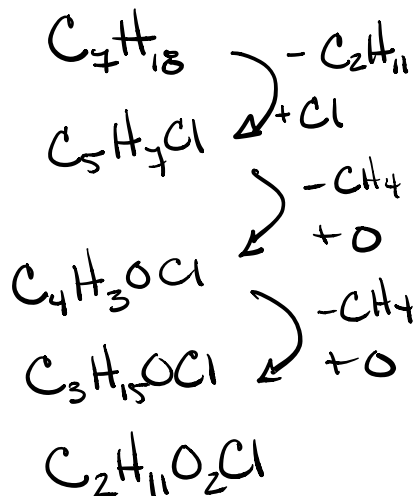 C₇H₁₈
- C₂H₁₁
+ Cl
C₅H₇Cl
- CH₄
+ O
C₄H₃OCl
- CH₄
+ O
C₃H₁₅OCl
C₂H₁₁O₂Cl